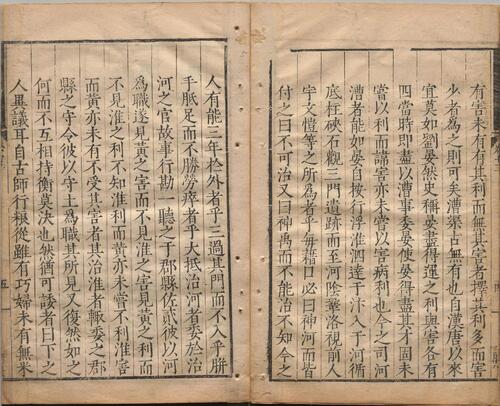 有害未有有其利而無其害者擇其利多而害
少者為之則可矣漕渠古無有也自漢唐以來
宜莫如劉晏然史稱晏盡得運之利與害各有
四當時即盡以漕事委晏使晏得盡其才固未
嘗以利而諱害亦未嘗以害病利也今之司河
漕者能如晏自按行浮淮泗達于汴入于河循
底柱硤石觀三門遺跡而至河陰鞏洛視前人
宇文愷等之所為者乎每藉口必曰神河而皆
付之曰不可治又曰神禹而不能治不知今之
人有能三年於外者乎三過其門而不入乎胼
手胝足而不勝勞瘁者乎大抵治河者委於治
河之官故事行勘一聽之于郡縣佐貳彼以河
為職遂見黃之害而不見淮之害見黃之利而
不見淮之利不知淮利而黃亦未嘗不利淮害
而黃亦未有不受其害者其治淮者輙委之郡
縣之守令彼以守土為職其所見又復然如之
何而不互相持衡莫決也然猶可諉者曰下之
人異議耳自古師行糧從雖有巧婦未有無米
五